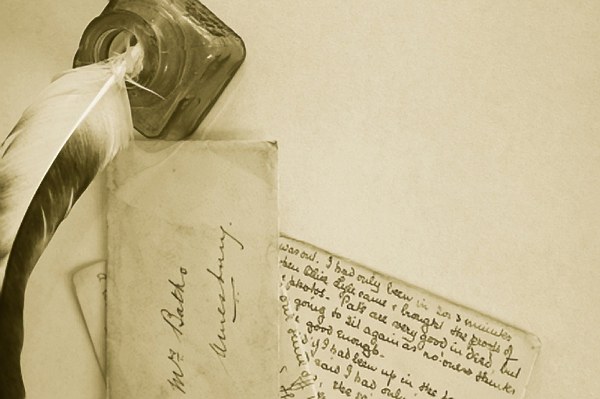 Mrs Batho
Amesbury.
was out. I had only been in 2 or 3 minutes
when Olive Lyle came & brought the proofs of
photos. Pats are very good in deed, but
going to sit again as no one thinks
good enough.
if I had been up in the
said I had only
the